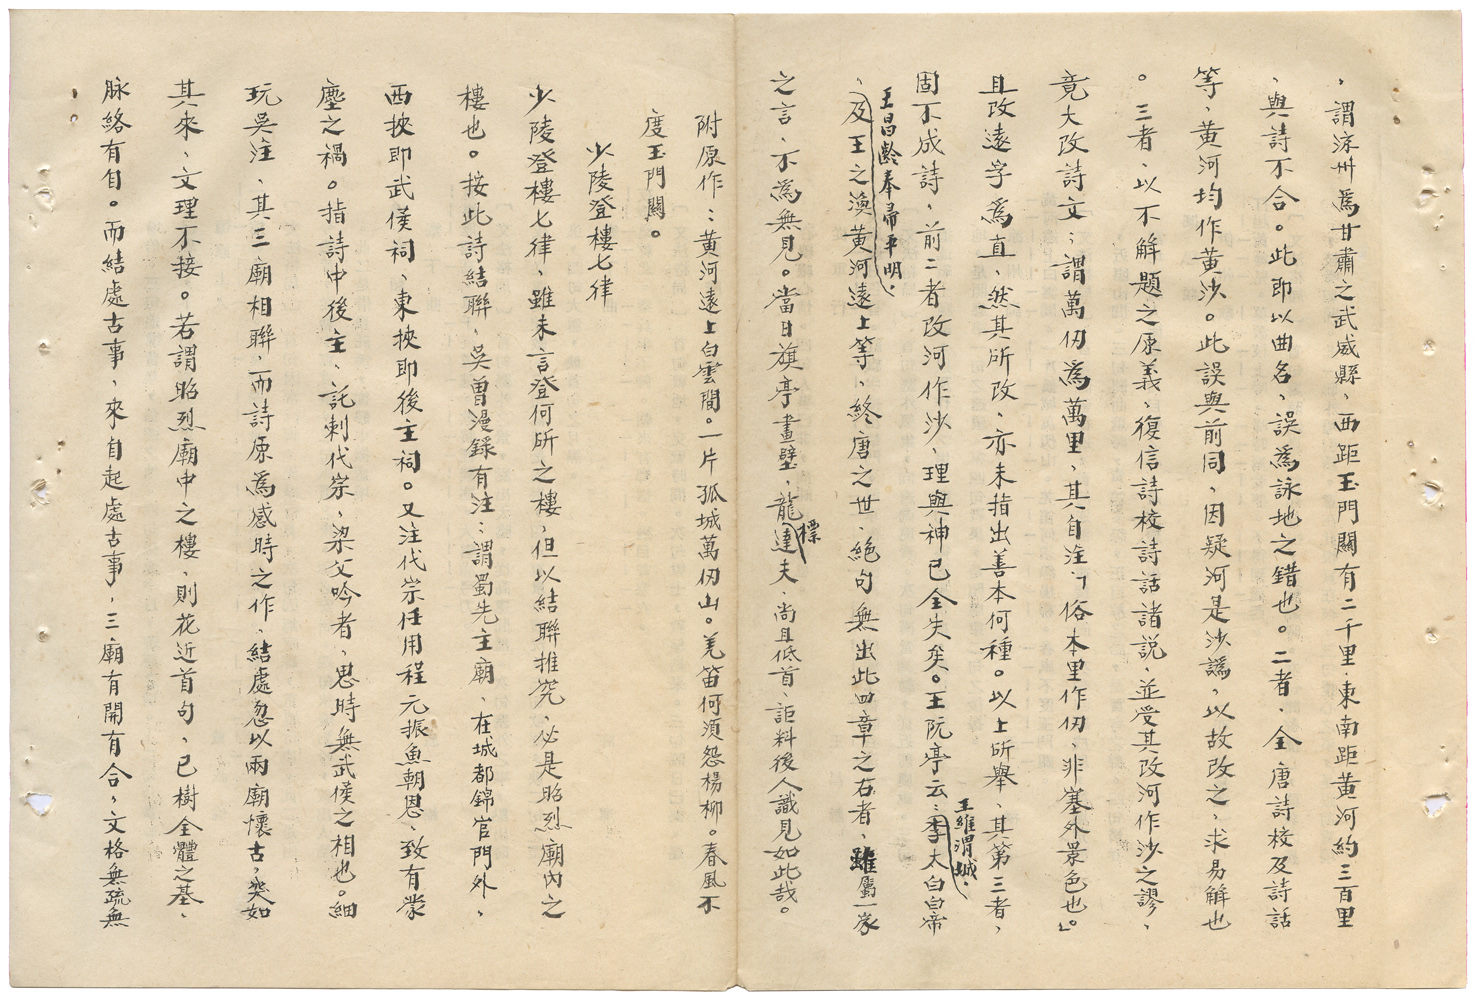 ，謂涼州爲甘肅之武威縣，西距玉門關有二千里，東南距黃河約三百里
，與詩不合。此即以曲名，誤爲詠地之錯也。二者，全唐詩校及詩話
等，黃河均作黃沙。此誤與前同，因疑河是沙譌，以故改之，求易解也
。三者，以不解題之原義，復信詩校詩話諸説，並受其改河作沙之謬，
竟大改詩文；謂萬仞爲萬里，其自注「俗本里作仞，非塞外景色也」。
且改遠字爲直，然其所改，亦未指出善本何種。以上所舉，其第三者，
固不成詩，前二者改河作沙，理與神已全失矣。王阮亭云：王維渭城，李太白白帝
，王昌齡奉帚平明，及王之渙黃河遠上等，終唐之世，絕句無出此四章之右者，雖屬一家
之言，不爲無見。當日旗亭畫壁，龍標達夫，尚且低首，詎料後人識見如此哉。
附原作：黃河遠上白雲間。一片孤城萬仞山。羌笛何須怨楊柳。春風不
度玉門關。
少陵登樓七律
少陵登樓七律，雖未言登何所之樓，但以結聯推究，必是昭烈廟內之
樓也。按此詩結聯，吳曾漫錄有注：謂蜀先主廟，在城都錦官門外，
西挾即武侯祠，東挾即後主祠。又注代宗任用程元振魚朝恩，致有蒙
塵之禍。指詩中後主，託刺代宗，梁父吟者，思時無武侯之相也。細
玩吳注，其三廟相聯，而詩原爲感時之作，結處忽以兩廟懷古，突如
其來，文理不接。若謂昭烈廟中之樓，則花近首句，已樹全體之基，
脉絡有自。而結處古事，來自起處古事，三廟有開有合，文格無疏無